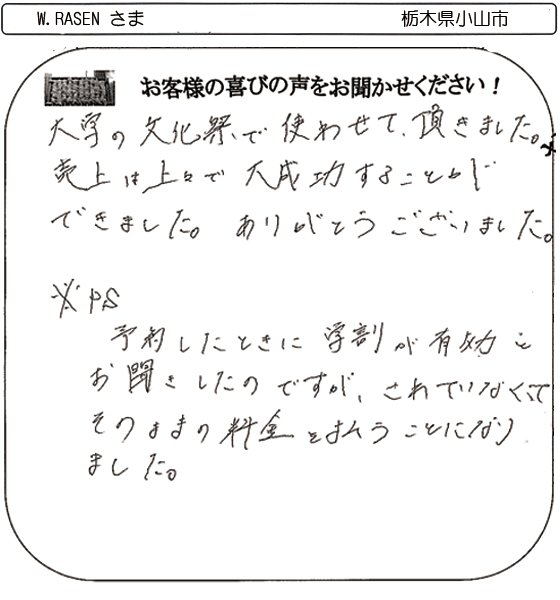 W.RASEN さま 栃木県小山市
お客様の喜びの声をお聞かせください！
大学の文化祭で使わせて頂きました。
売上は上々で大成功することが
できました。ありがとうございました。
※PS
予約したときに学割が有効と
お聞きしたのですが、されていなくて
そのままの料金を払うことになり
ました。